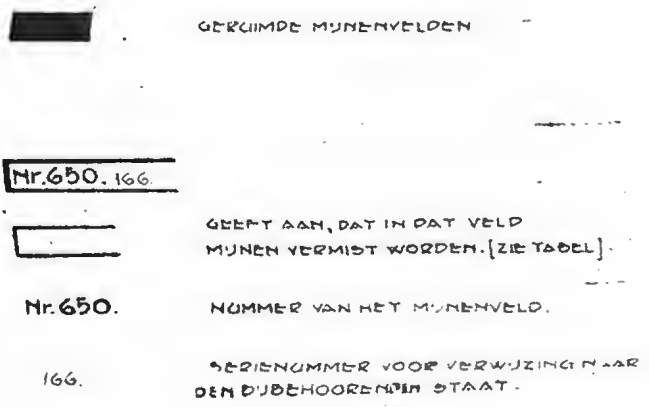 GERUIMDE MIJNENVELDEN
Nr.650. 166.
GEEFT AAN, DAT IN DAT VELD
MIJNEN VERMIST WORDEN.[ZIE TABEL].
Nr.650. NUMMER VAN HET MIJNENVELD.
166. SERIENUMMER VOOR VERWIJZING NAAR
DEN BIJBEHOORENDEN STAAT.